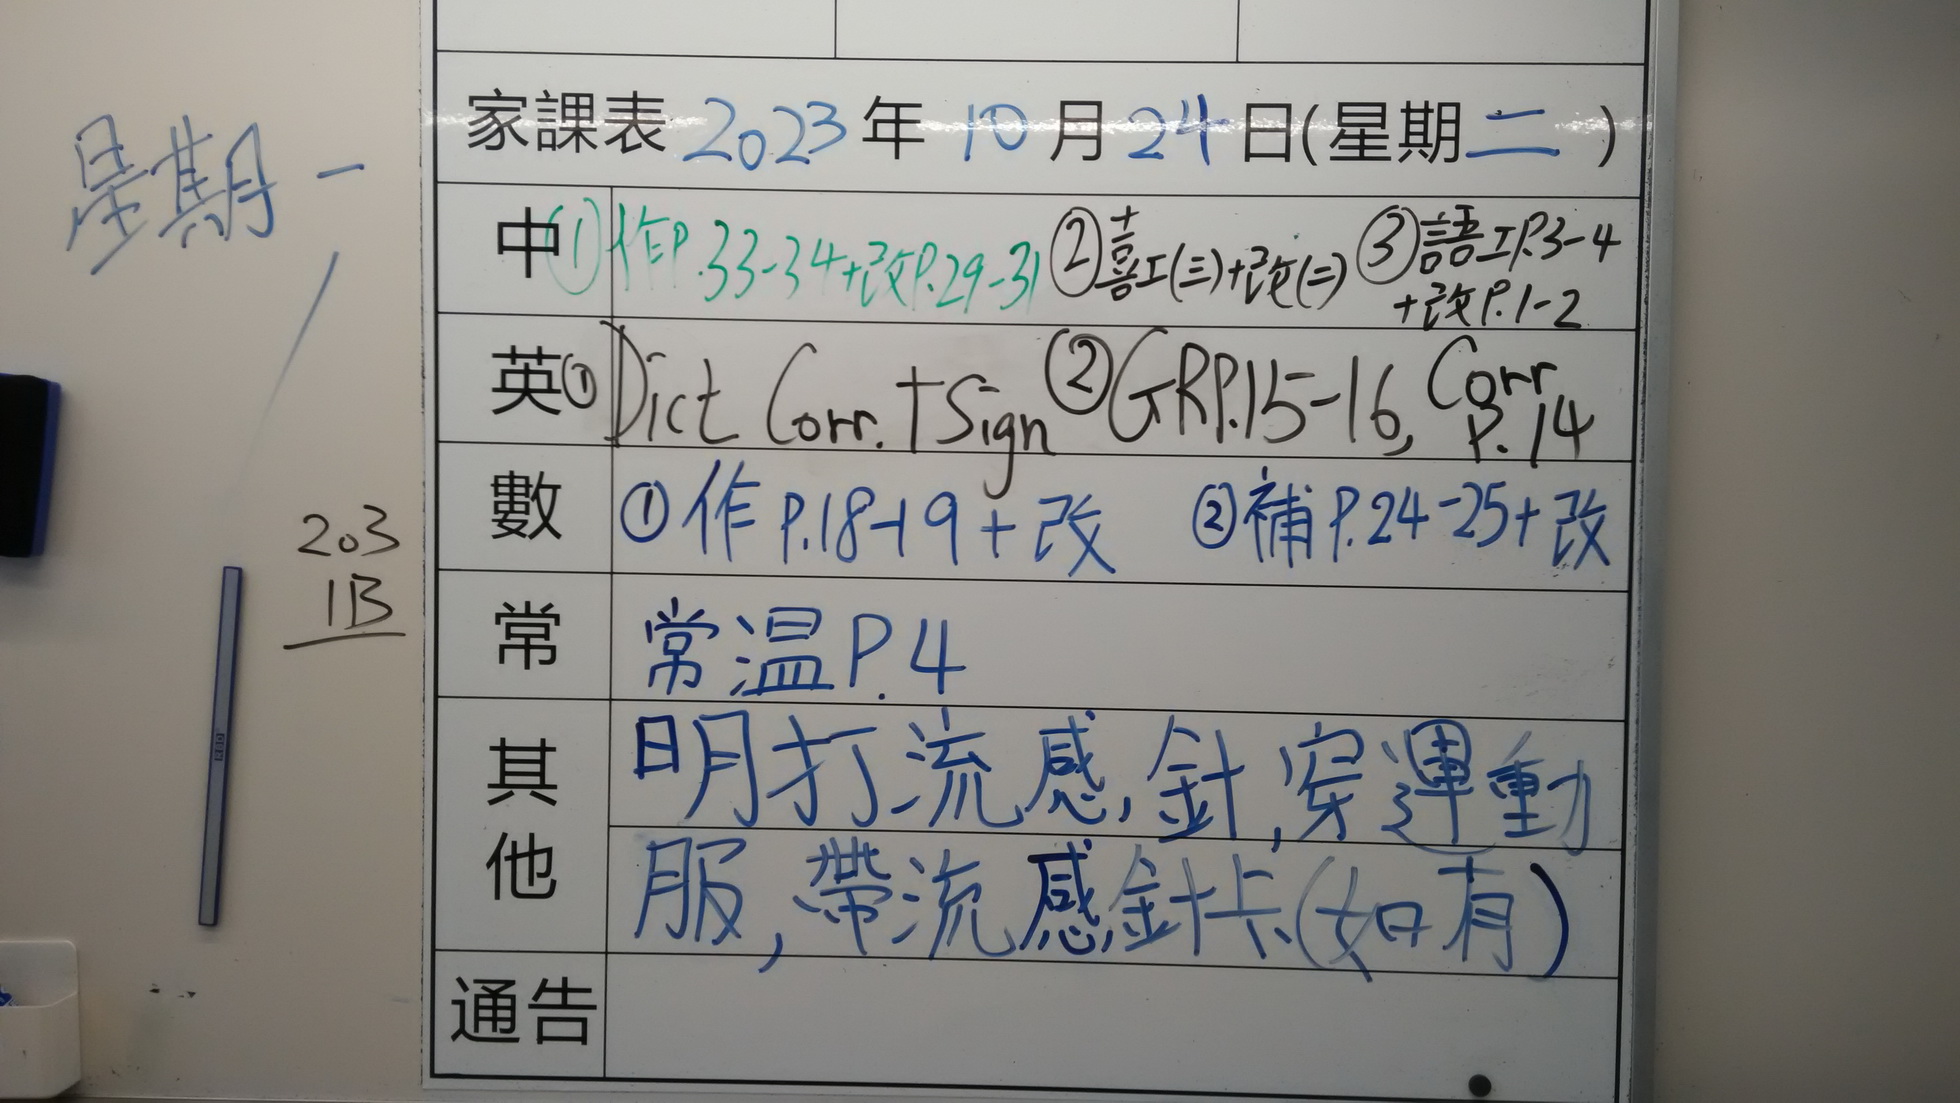 家課表 2023 年 10 月 24 日(星期二)
星期一
中 ①作P.33-34+改P.29-31 ②喜工(三)+改(二) ③語工P.3-4
+改P.1-2
英 ① Dict Corr. + Sign ② GRP.15-16, Corr
P.14
數 ①作P.18-19+改 ②補P.24-25+改
203
1B
常 常温P.4
其他 明打流感針,穿運動
服,帶流感針卡(如有)
通告